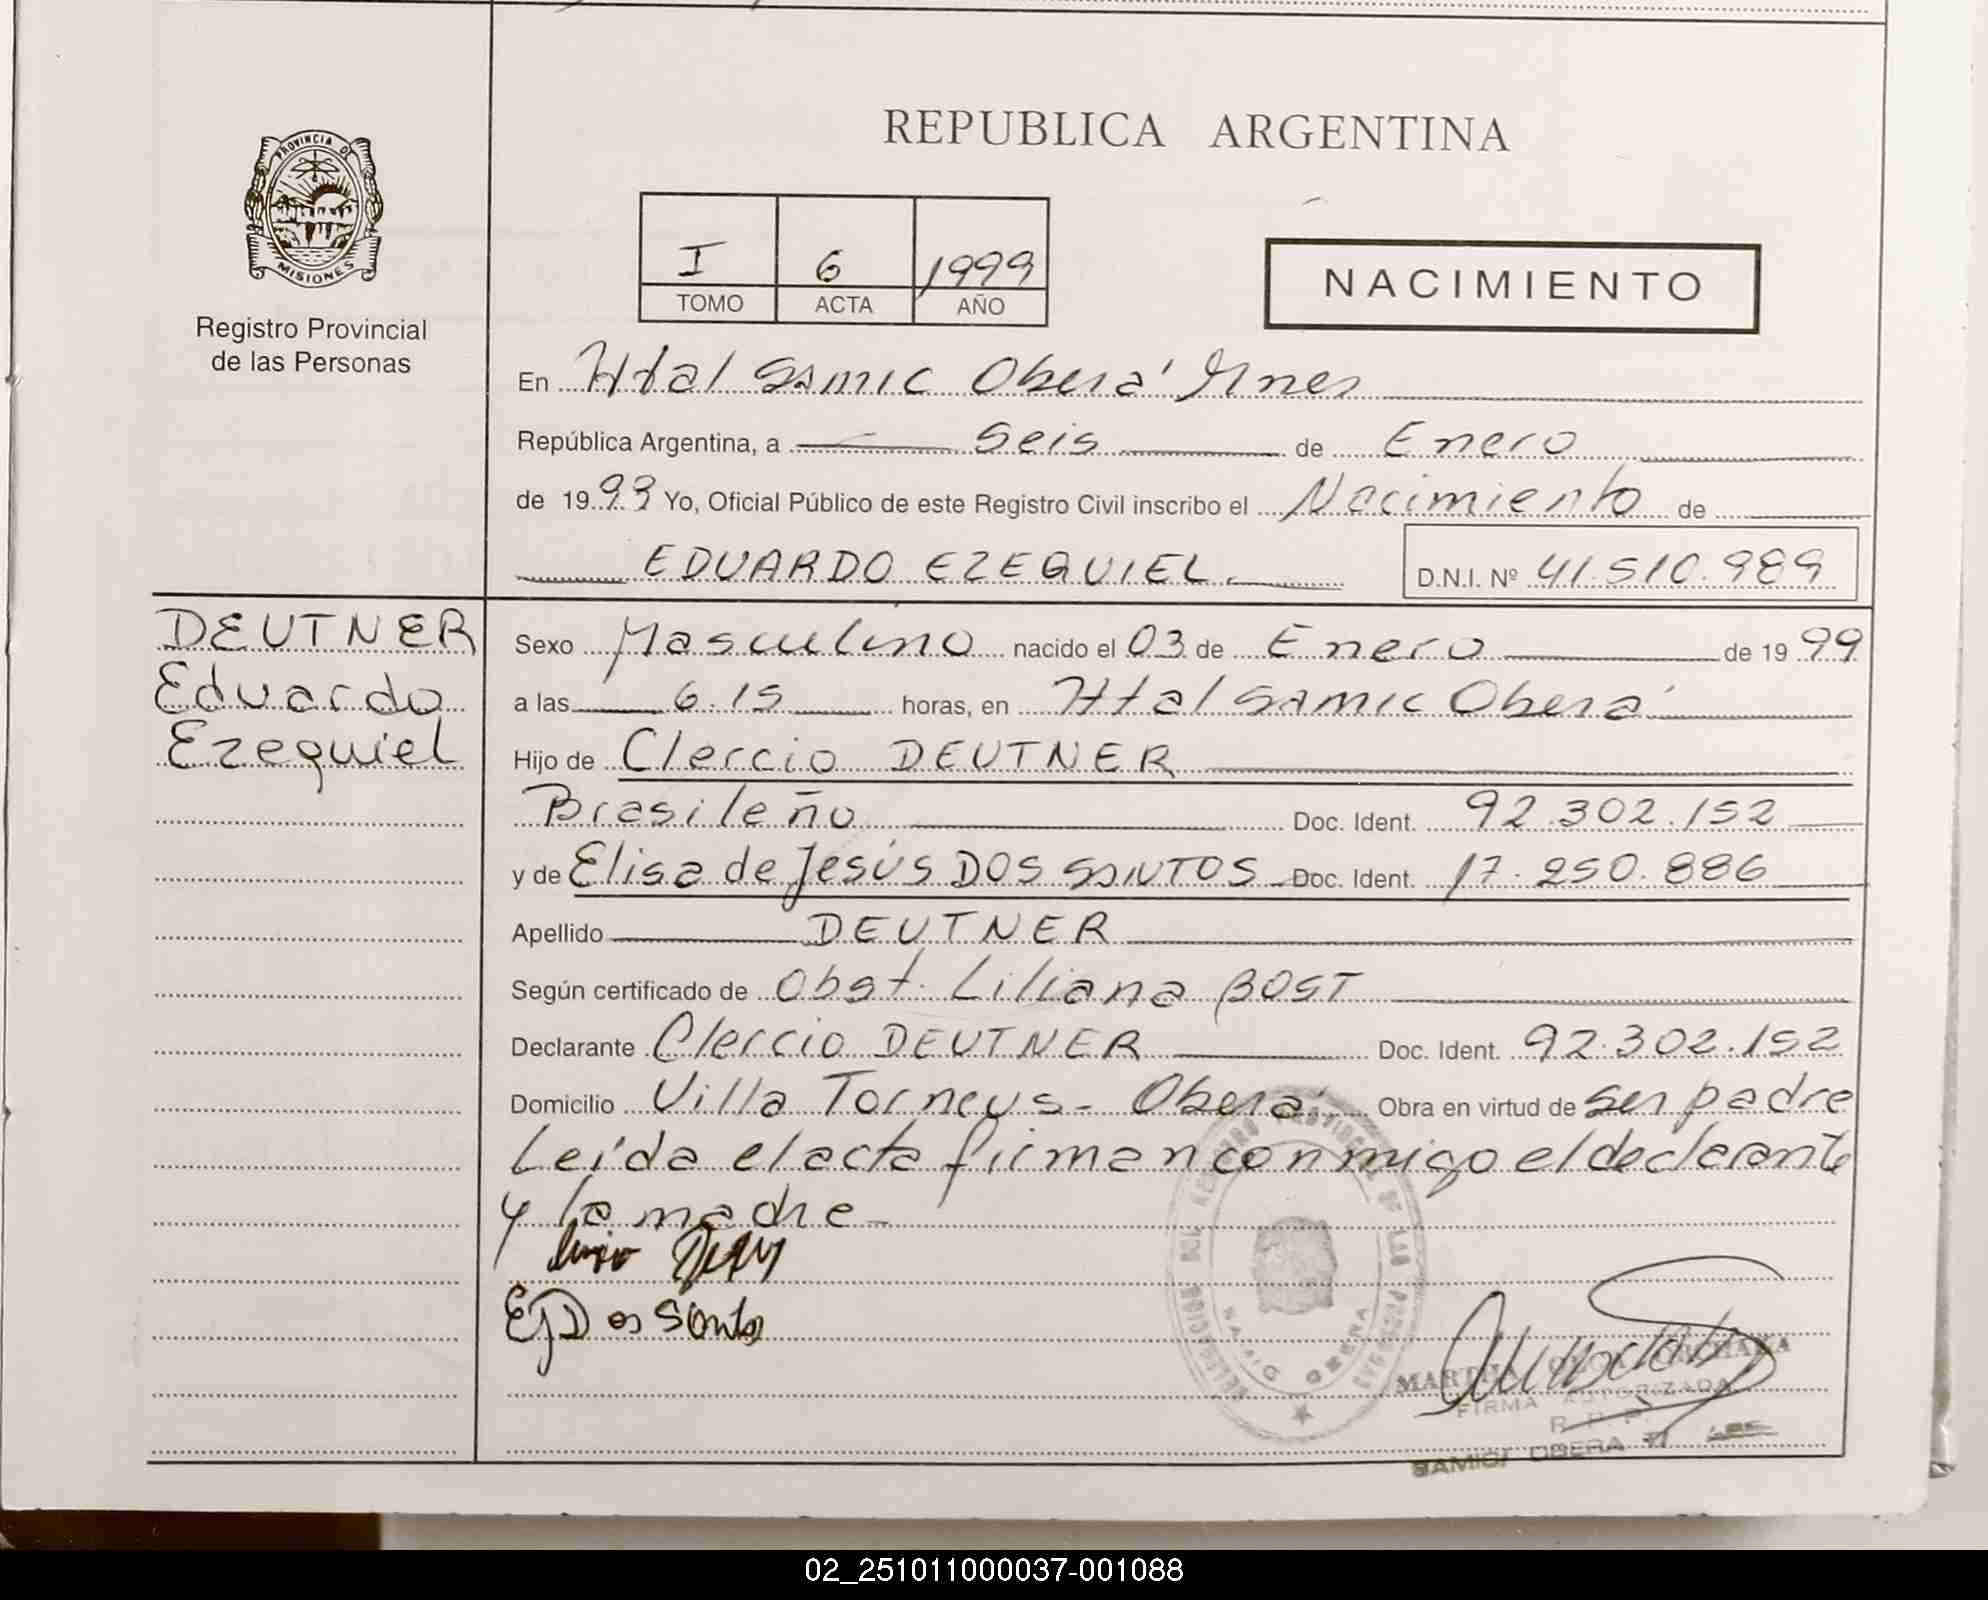 REPUBLICA ARGENTINA
PROVINCIA DE
MISIONES
Registro Provincial
de las Personas
I 6 1999
TOMO ACTA AÑO
NACIMIENTO
En Htal SAMIC Oberá Mnes
República Argentina, a Seis de Enero
de 1999 Yo, Oficial Público de este Registro Civil inscribo el Nacimiento de
EDUARDO EZEQUIEL.
D.N.I. Nº 41.510.989
DEUTNER
Eduardo
Ezequiel
Sexo Masculino nacido el 03 de Enero de 1999
a las 6.15 horas, en Htal SAMIC Oberá
Hijo de Cleccio DEUTNER
Brasileño Doc. Ident. 92.302.152
y de Elisa de Jesús DOS SANTOS Doc. Ident. 17.250.886
Apellido DEUTNER
Según certificado de Obst. Liliana BOST
Declarante Cleccio DEUTNER Doc. Ident. 92.302.152
Domicilio Villa Torneus - Oberá. Obra en virtud de ser padre
Leída el acta firman conmigo el declarante
y la madre -
EJDos Santos
REGISTRO PROVINCIAL DE LAS PERSONAS
SAMIC OBERA
FIRMA AUTORIZADA
R. P. P.
SAMIC OBERA
02_251011000037-001088